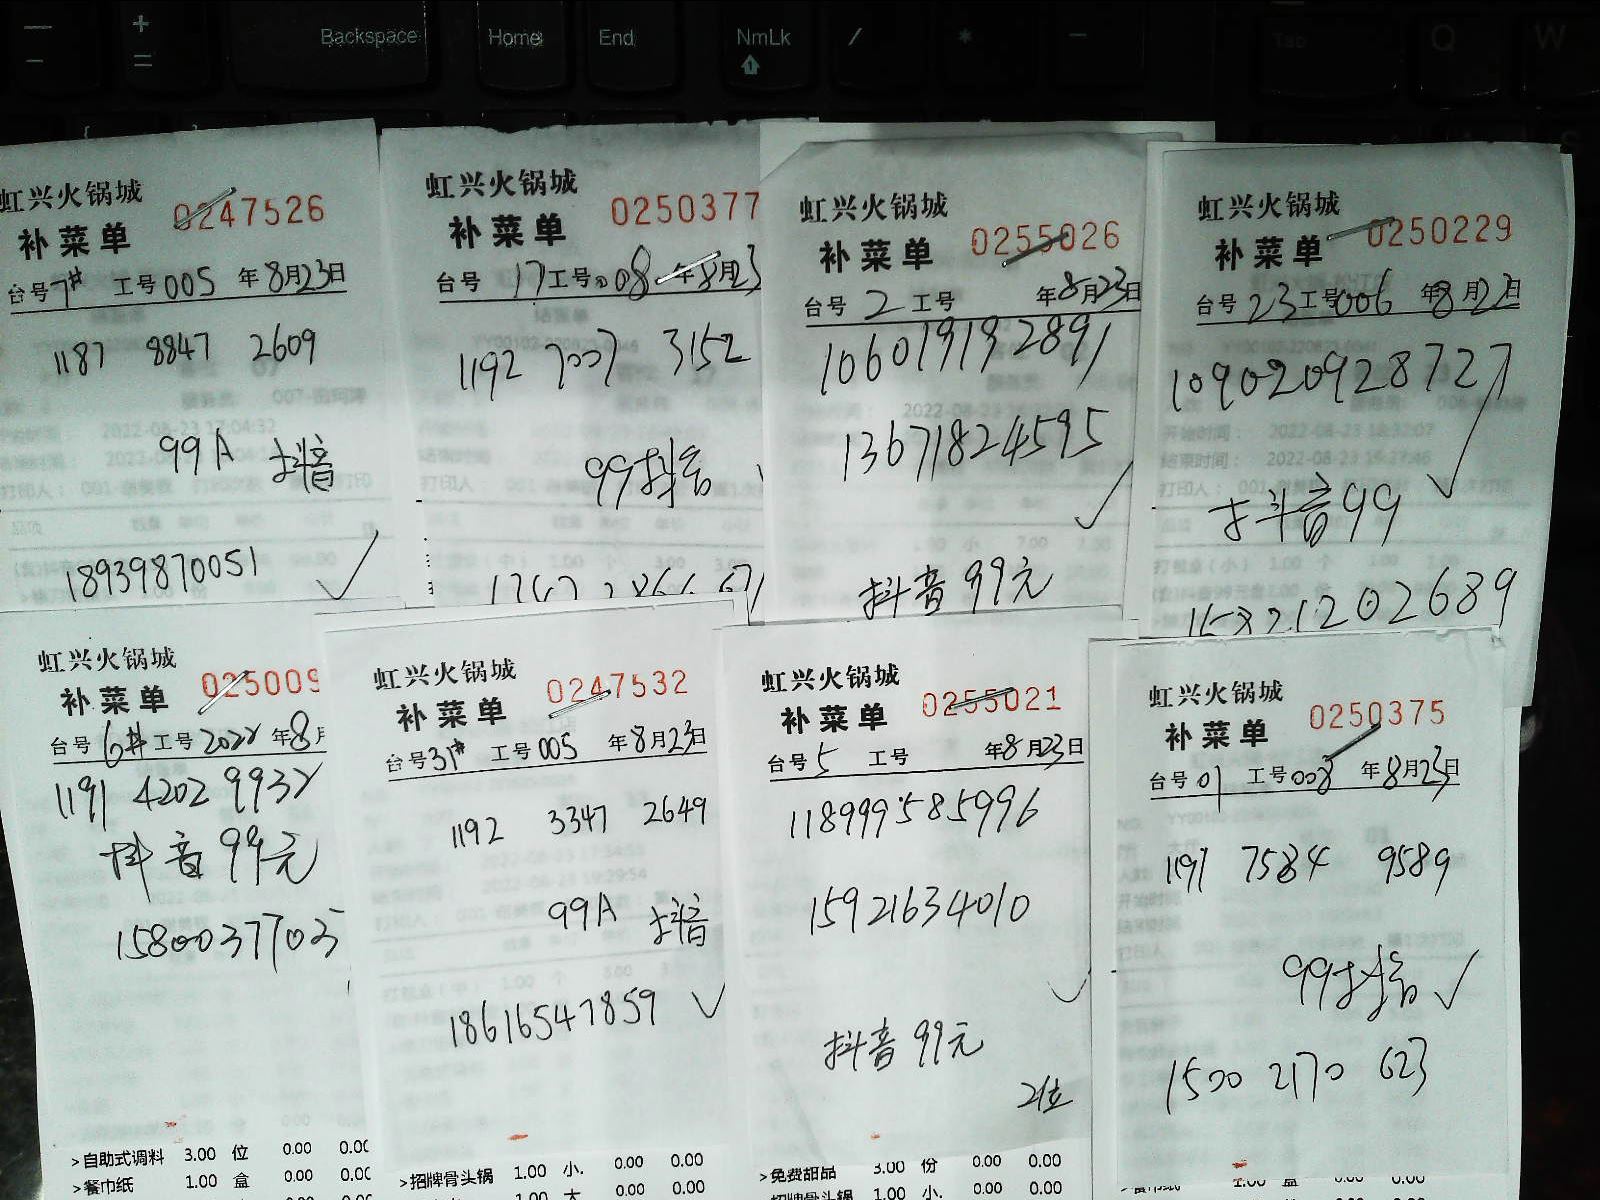 Backspace Home End NmLk / * -
Tab Q W
虹兴火锅城
补菜单 0247526
台号 7# 工号 005 年 8月23日
1187 8847 2609
99A 抖音
18939870051
虹兴火锅城
补菜单 0250377
台号 17 工号 008 年 8月23
1192 7007 3152
99抖音
虹兴火锅城
补菜单 0255026
台号 2 工号 年 8月23日
106019192891
13671824595
抖音99元
虹兴火锅城
补菜单 0250229
台号 23 工号 006 年 8月23日
109020928727
抖音99
15821202689
虹兴火锅城
补菜单 025009
台号 6# 工号 2022 年 8月
1191 4202 9932
抖音99元
15800377035
虹兴火锅城
补菜单 0247532
台号 31# 工号 005 年 8月23日
1192 3347 2649
99A 抖音
18616547859
>招牌骨头锅 1.00 小. 0.00 0.00
1.00 大
虹兴火锅城
补菜单 0255021
台号 5 工号 年 8月23日
118999585996
15921634010
抖音99元
2位
>免费甜品 3.00 份 0.00 0.00
招牌骨头锅 1.00 小. 0.00 0.00
虹兴火锅城
补菜单 0250375
台号 01 工号 008 年 8月23日
1191 7584 9589
99抖音
1500 2170 623
>自助式调料 3.00 位 0.00 0.00
>餐巾纸 1.00 盒 0.00 0.00